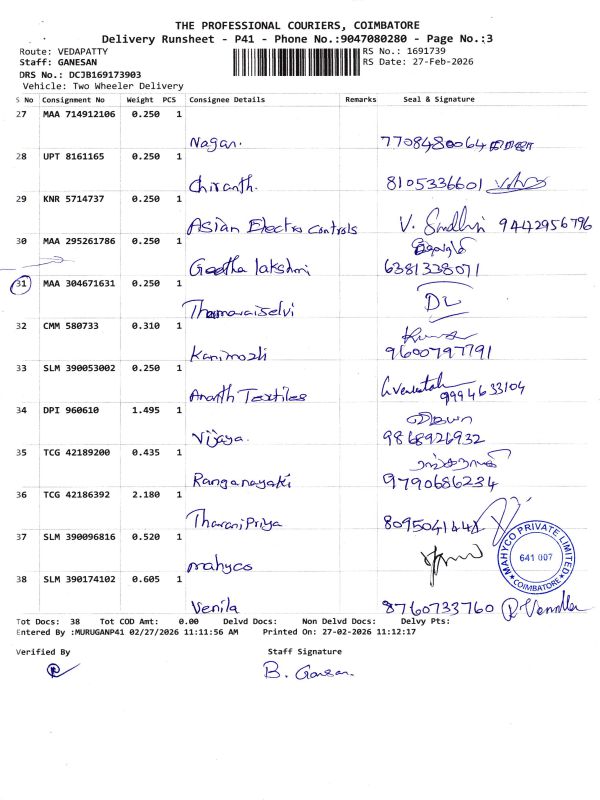 THE PROFESSIONAL COURIERS, COIMBATORE
Delivery Runsheet - P41 - Phone No.:9047080280 - Page No.:3
Route: VEDAPATTY
RS No.: 1691739
Staff: GANESAN
RS Date: 27-Feb-2026
DRS No.: DCJB169173903
Vehicle: Two Wheeler Delivery
S No Consignment No Weight PCS Consignee Details Remarks Seal & Signature
27 MAA 714912106 0.250 1
Nagan. 7708480064
28 UPT 8161165 0.250 1
Chiranth. 8105336601
29 KNR 5714737 0.250 1
Asian Electro Controls V. Sindhri 9442956796
30 MAA 295261786 0.250 1
Geetha lakshmi 6381338071
31 MAA 304671631 0.250 1
Thamaraiselvi DL
32 CMM 580733 0.310 1
Kanimozhi 9600797791
33 SLM 390053002 0.250 1
Ananth Textiles 9994633104
34 DPI 960610 1.495 1
Vijaya. 9868926932
35 TCG 42189200 0.435 1
Ranganayaki 9790686234
36 TCG 42186392 2.180 1
TharaniPriya
37 SLM 390096816 0.520 1
mahyco
MAHYCO PRIVATE LIMITED
641 007
COIMBATORE
38 SLM 390174102 0.605 1
Venila 8760733760
Tot Docs: 38 Tot COD Amt: 0.00 Delvd Docs: Non Delvd Docs: Delvy Pts:
Entered By :MURUGANP41 02/27/2026 11:11:56 AM Printed On: 27-02-2026 11:12:17
Verified By Staff Signature
B. Ganesan.